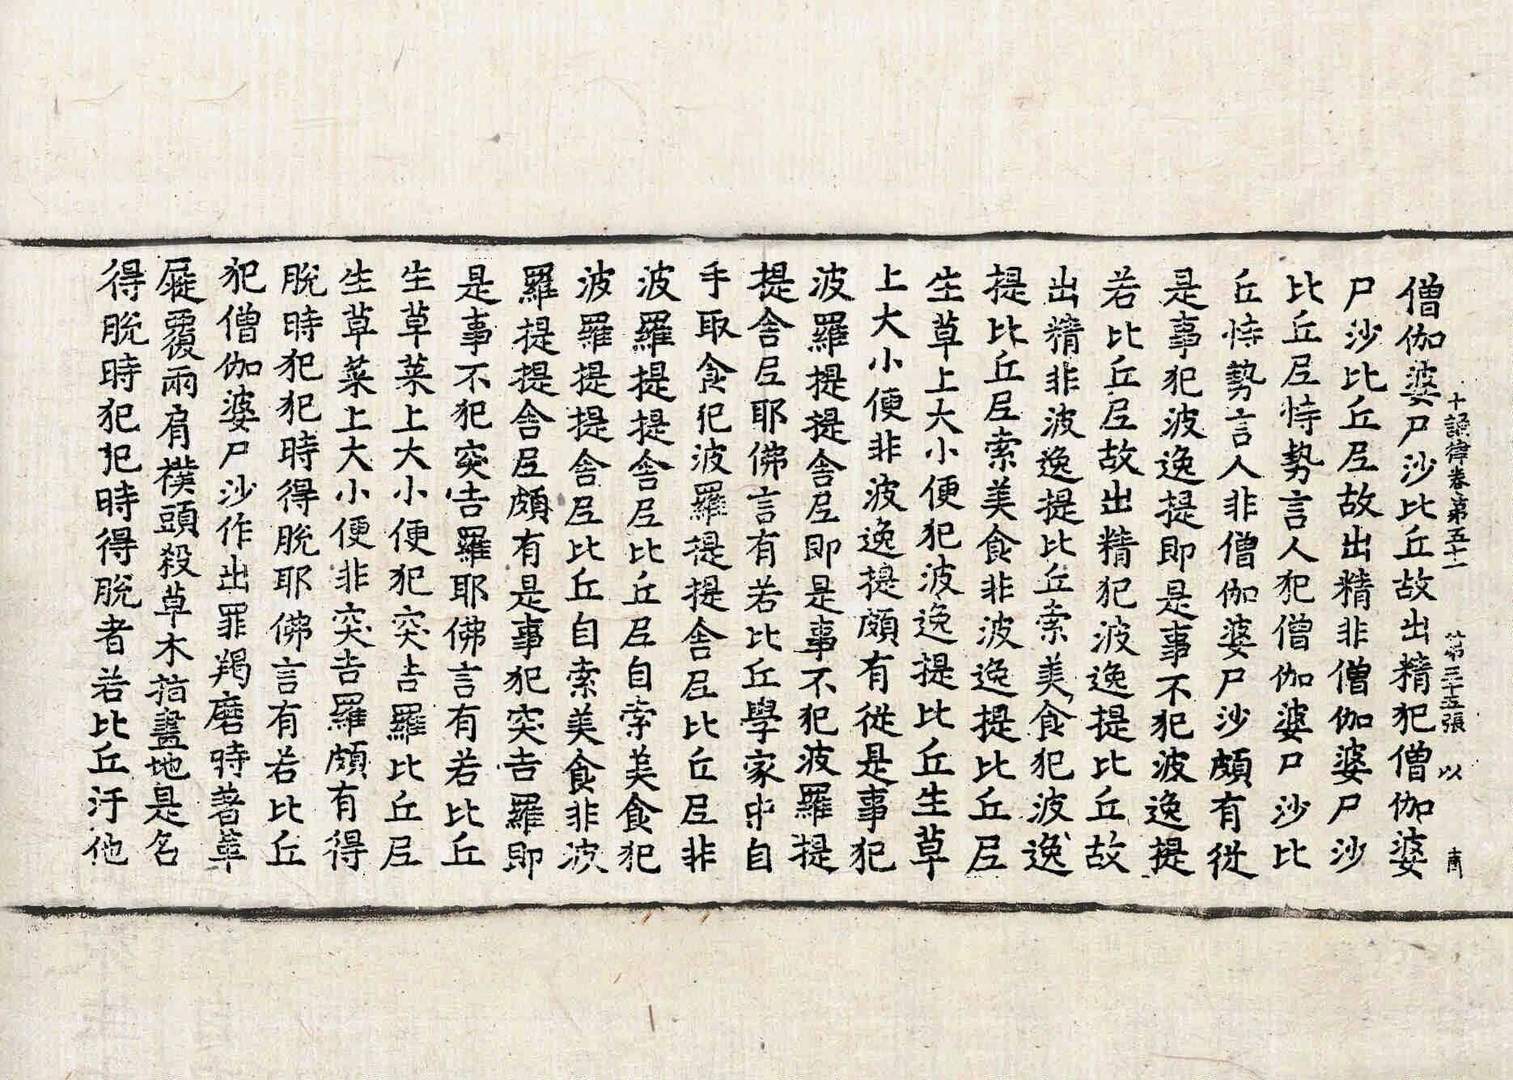 十誦律卷第五十一 第三十五張 以
僧伽婆尸沙比丘故出精犯僧伽婆
尸沙比丘𡰱故出精非僧伽婆尸沙
比丘𡰱恃勢言人犯僧伽婆尸沙比
丘恃勢言人非僧伽婆尸沙頗有從
是事犯波逸提即是事不犯波逸提
若比丘𡰱故出精犯波逸提比丘故
出精非波逸提比丘索美食犯波逸
提比丘𡰱索美食非波逸提比丘𡰱
生草上大小便犯波逸提比丘生草
上大小便非波逸提頗有從是事犯
波羅提提舍𡰱即是事不犯波羅提
提舍𡰱耶佛言有若比丘學家中自
手取食犯波羅提提舍𡰱比丘𡰱非
波羅提提舍𡰱比丘𡰱自索美食犯
波羅提提舍𡰱比丘自索美食非波
羅提提舍𡰱頗有是事犯突吉羅即
是事不犯突吉羅耶佛言有若比丘
生草菜上大小便犯突吉羅比丘𡰱
生草菜上大小便非突吉羅頗有得
脫時犯犯時得脫耶佛言有若比丘
犯僧伽婆尸沙作出罪羯磨時著革
屣覆兩肩襆頭殺草木掐畫地是名
得脫時犯犯時得脫者若比丘汙他